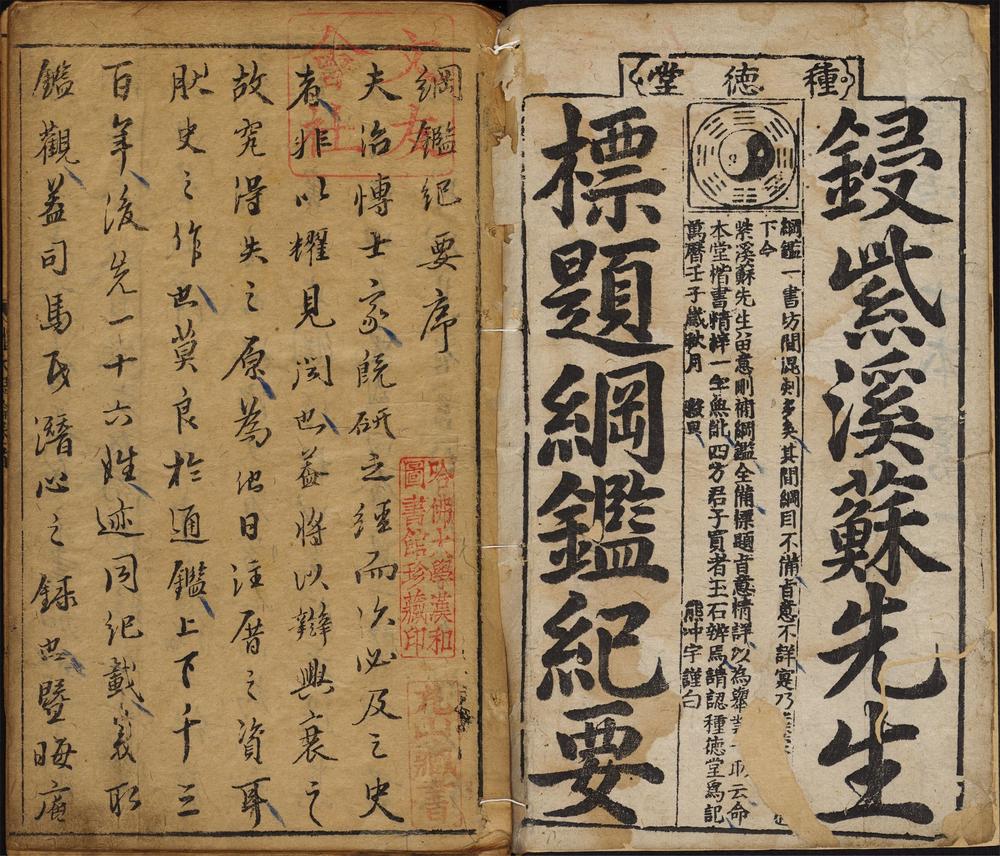 種德堂
鋟紫溪蘇先生
綱鑑一書坊間混刻多矣其間綱目不備旨意不詳寔乃
下今
紫溪蘇先生留意刪補綱鑑全備標題旨意情詳以為舉業一取云命
本堂楷書精梓一字無訛四方君子買者玉石辨焉請認種德堂爲記
萬曆壬子歲秋月 熊冲宇謹白
標題綱鑑紀要
綱鑑紀要序
夫治博士家旣研之經而次必及之史
者非以耀見聞也蓋將以辯興衰之
故究得失之原為他日注厝之資耳
史之作也莫良於通鑑上下千三
百年後先一十六姓迹同紀載
鑑觀蓋司馬氏潛心之錄也暨晦庵
文友
會社
哈佛大學漢和
圖書館珍藏印